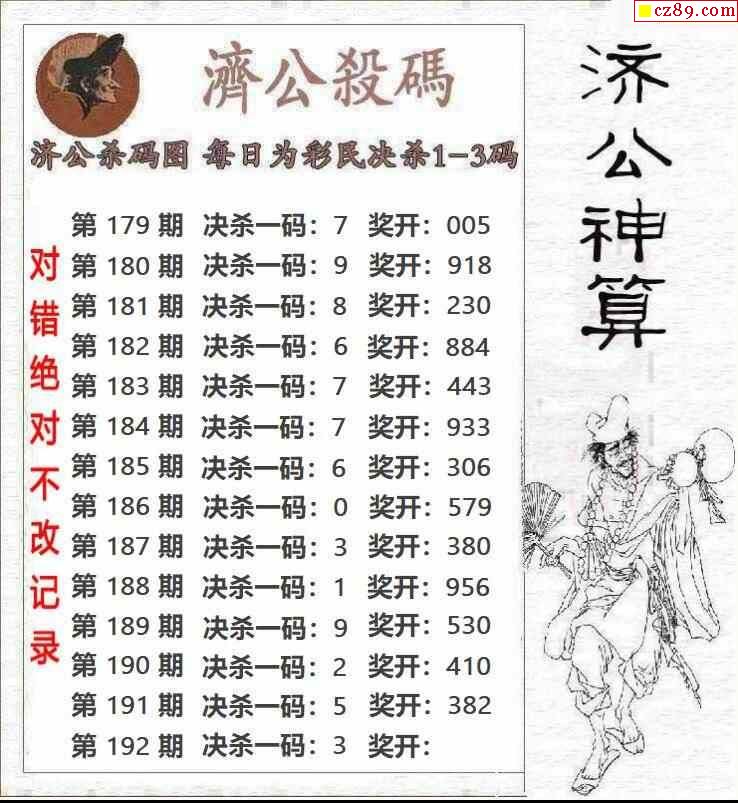 cz89.com
濟公殺碼
济公杀码图 每日为彩民决杀1-3码
第 179 期 决杀一码：7 奖开：005
第 180 期 决杀一码：9 奖开：918
第 181 期 决杀一码：8 奖开：230
第 182 期 决杀一码：6 奖开：884
第 183 期 决杀一码：7 奖开：443
第 184 期 决杀一码：7 奖开：933
第 185 期 决杀一码：6 奖开：306
第 186 期 决杀一码：0 奖开：579
第 187 期 决杀一码：3 奖开：380
第 188 期 决杀一码：1 奖开：956
第 189 期 决杀一码：9 奖开：530
第 190 期 决杀一码：2 奖开：410
第 191 期 决杀一码：5 奖开：382
第 192 期 决杀一码：3 奖开：
对错绝对不改记录
济公神算